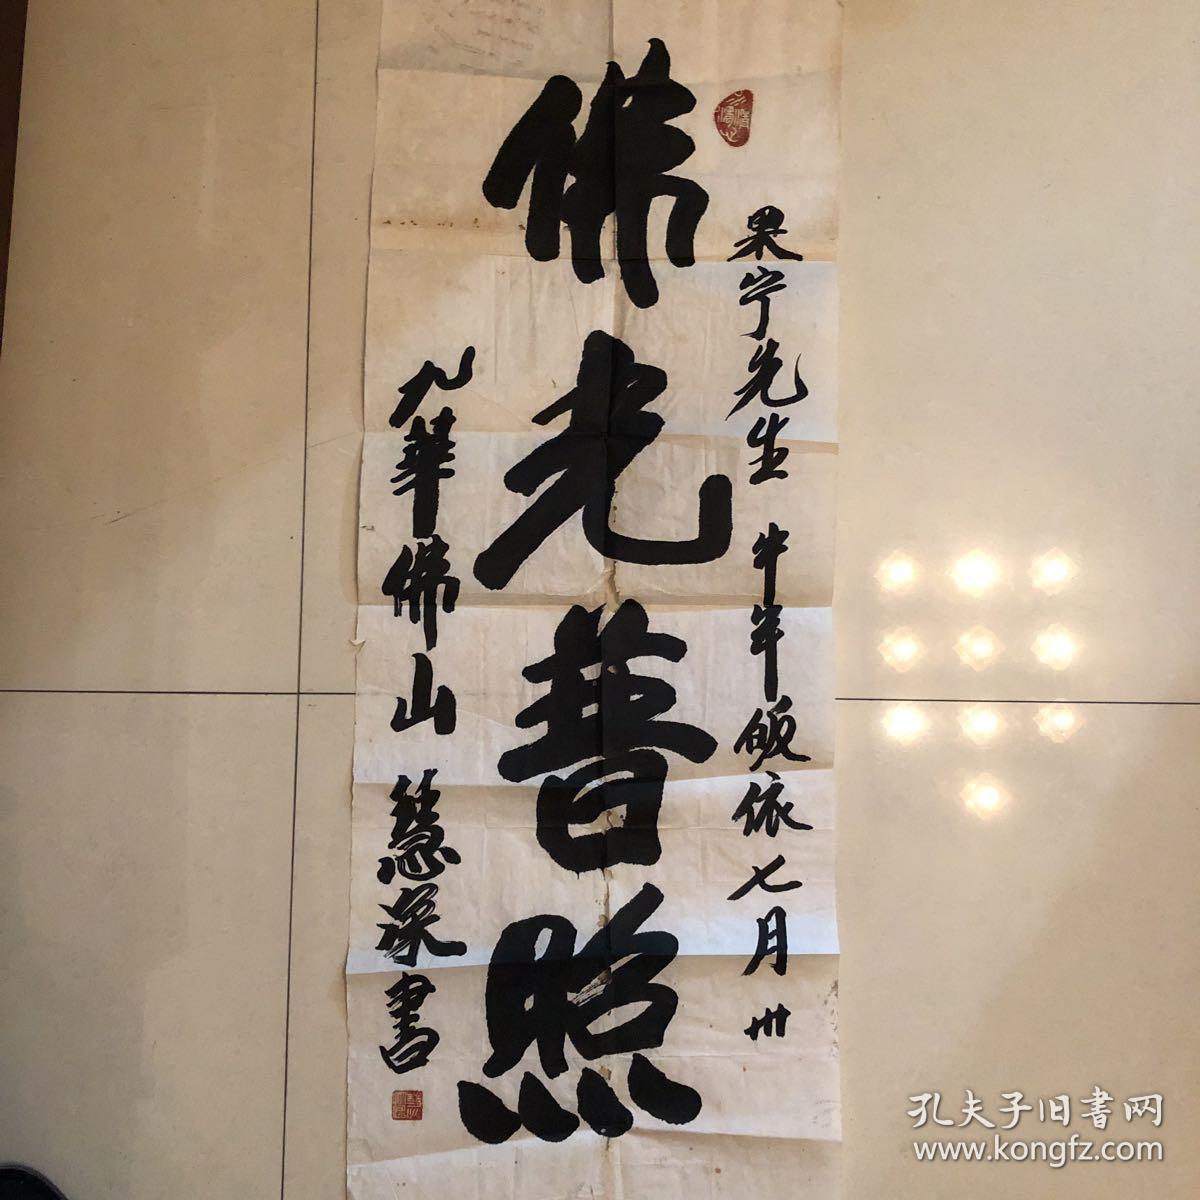 果宁先生 牛年皈依七月卅
佛光普照
九華佛山 慧深書
孔夫子旧書网
www.kongfz.com